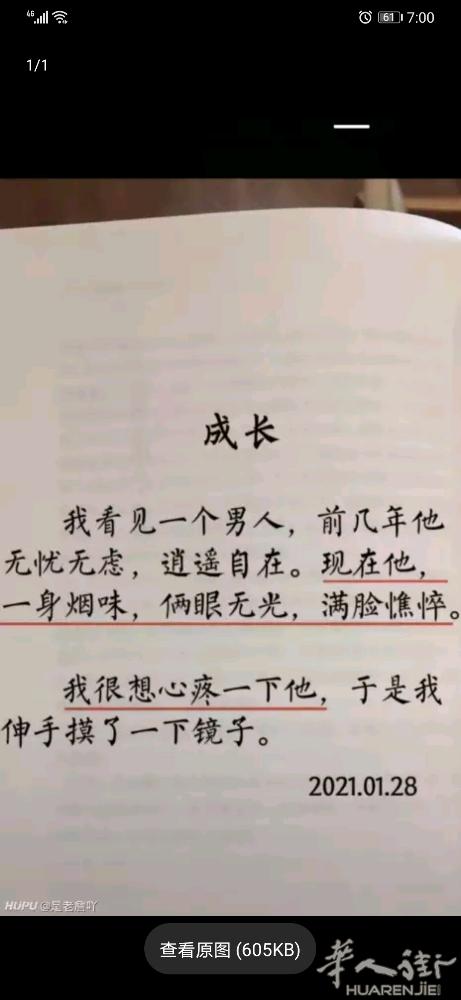 4G 61 7:00
1/1
成长
我看见一个男人，前几年他
无忧无虑，逍遥自在。现在他，
一身烟味，俩眼无光，满脸憔悴。
我很想心疼一下他，于是我
伸手摸了一下镜子。
2021.01.28
HUPU @是老詹吖
查看原图 (605KB)
華人街
HUARENJIE